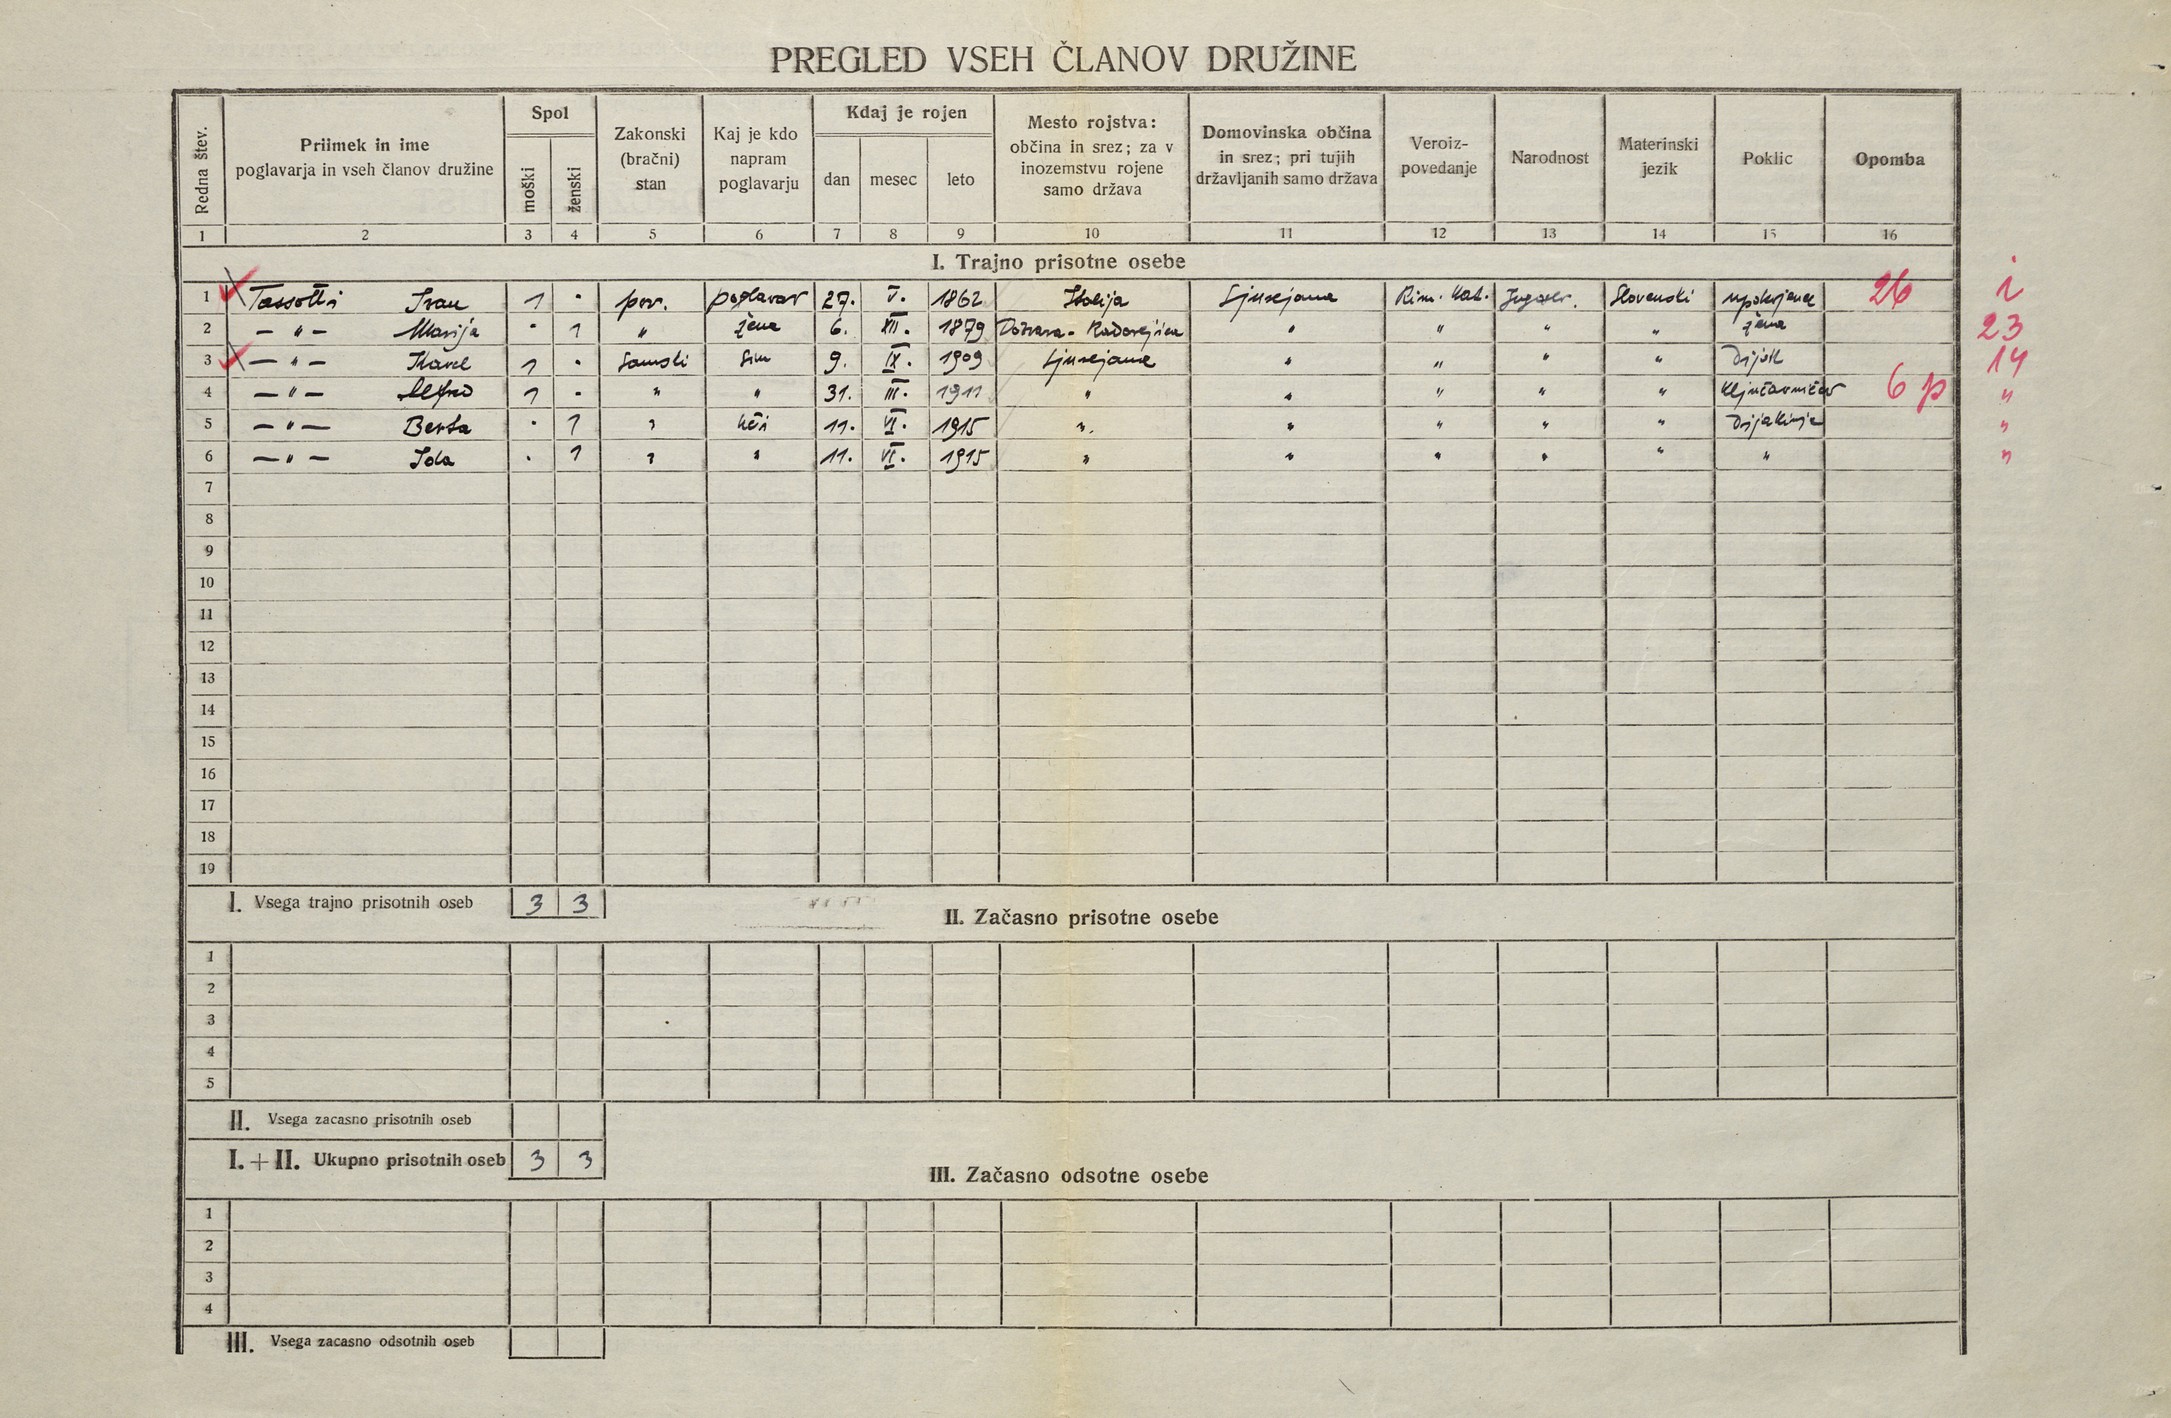 PREGLED VSEH ČLANOV DRUŽINE
Redna štev. | Priimek in ime poglavarja in vseh članov družine | Spol | Zakonski (bračni) stan | Kaj je kdo napram poglavarju | Kdaj je rojen | Mesto rojstva: občina in srez; za v inozemstvu rojene samo država | Domovinska občina in srez; pri tujih državljanih samo država | Veroiz-povedanje | Narodnost | Materinski jezik | Poklic | Opomba
moški | ženski | dan | mesec | leto
1 | 2 | 3 | 4 | 5 | 6 | 7 | 8 | 9 | 10 | 11 | 12 | 13 | 14 | 15 | 16
I. Trajno prisotne osebe
1 | Tassotti Ivan | 1 | · | por. | poglavar | 27. | V. | 1862 | Italija | Ljubljana | Rim. kat. | Jugoslov. | Slovenski | upokojenec | 26 | i
2 | – " – Marija | · | 1 | " | žena | 6. | XII. | 1879 | Dobrava - Radovljica | " | " | " | " | žena | 23
3 | – " – Karel | 1 | · | samski | sin | 9. | IX. | 1909 | Ljubljana | " | " | " | " | Dijak | 14
4 | – " – Alfred | 1 | · | " | " | 31. | III. | 1911 | " | " | " | " | " | Ključavničar | 6 p | "
5 | – " – Berta | · | 1 | " | hči | 11. | VI. | 1915 | " | " | " | " | " | Dijakinja | "
6 | – " – Ida | · | 1 | " | " | 11. | VI. | 1915 | " | " | " | " | " | " | "
7
8
9
10
11
12
13
14
15
16
17
18
19
I. Vsega trajno prisotnih oseb | 3 | 3
II. Začasno prisotne osebe
1
2
3
4
5
II. Vsega zacasno prisotnih oseb
I. + II. Ukupno prisotnih oseb | 3 | 3
III. Začasno odsotne osebe
1
2
3
4
III. Vsega zacasno odsotnih oseb